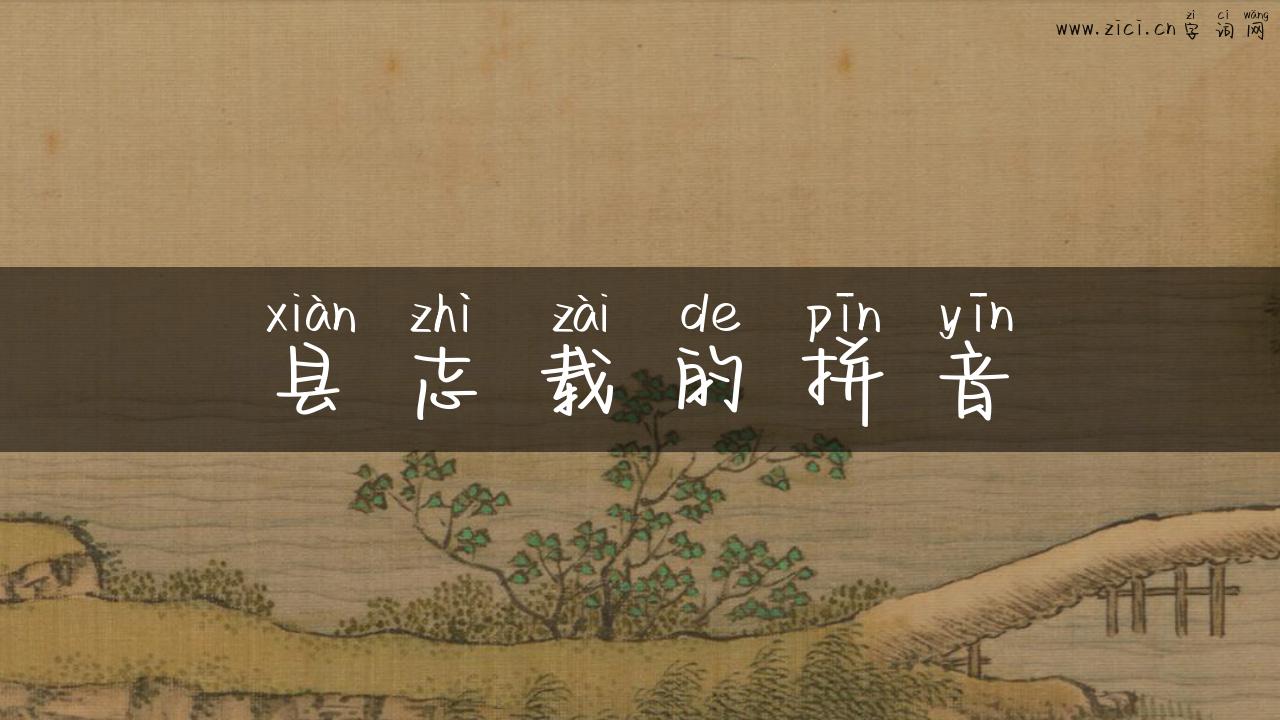 zì cí wǎng
www.zici.cn 字词网
xiàn zhì zài de pīn yīn
县志载的拼音